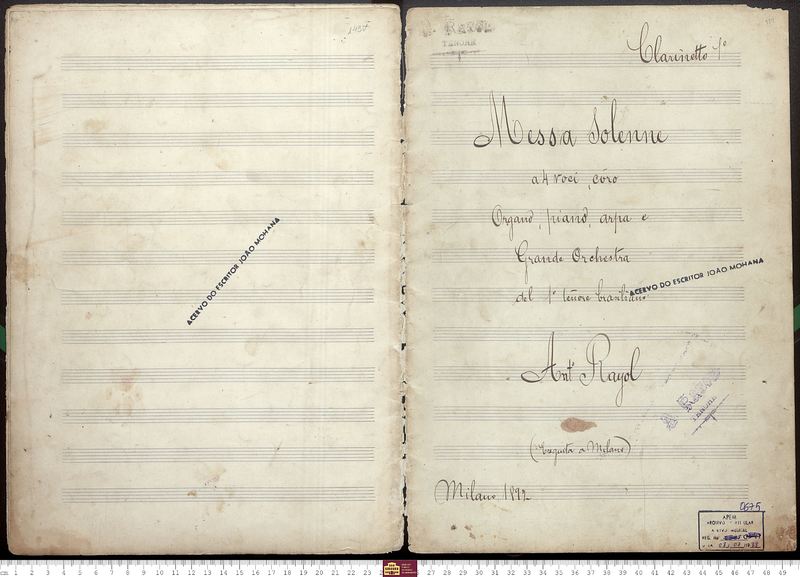 1437
ACERVO DO ESCRITOR JOÃO MOHANA
A. RAYOL
TENORE
Clarinetto 1º
Messa Solenne
a 4 voci, côro
Organo, piano, arpa e
Grande Orchestra
del 1º tenore brasiliano
ACERVO DO ESCRITOR JOÃO MOHANA
Antº Rayol
A. RAYOL
TENORE
(Eseguita a Milano)
Milano 1892
0675
APEM
ACERVO MUSICAL
REG. No
cm 1 2 3 4 5 6 7 8 9 10 11 12 13 14 15 16 17 18 19 20 21 22 23 27 28 29 30 31 32 33 34 35 36 37 38 39 40 41 42 43 44 45 46 47 48 49